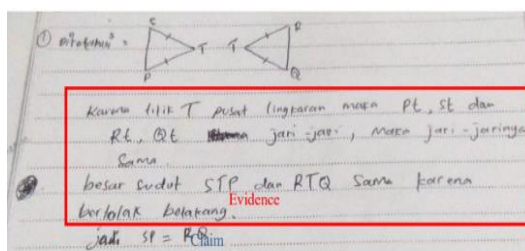 ① Diketahui =
S P T T R Q
Karena titik T pusat lingkaran maka Pt, St dan
Rt, Qt jari-jari, maka jari-jarinya
Sama.
besar sudut STP dan RTQ Sama karena
bertolak belakang.
Evidence
jadi SP = RQ
Claim